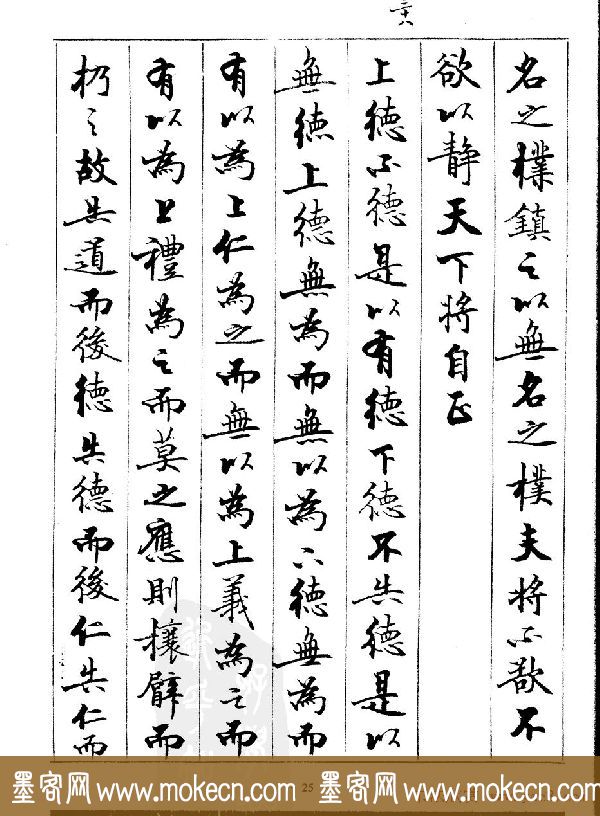 名之樸鎮之以無名之樸夫将不欲不
欲以静天下将自正
上德不德是以有德下德不失德是以
無德上德無為而無以為下德無為而
有以為上仁為之而無以為上義為之而
有以為上禮為之而莫之應則攘臂而
扔之故失道而後德失德而後仁失仁而
墨客网www.mokecn.com 25 墨客网www.mokecn.com